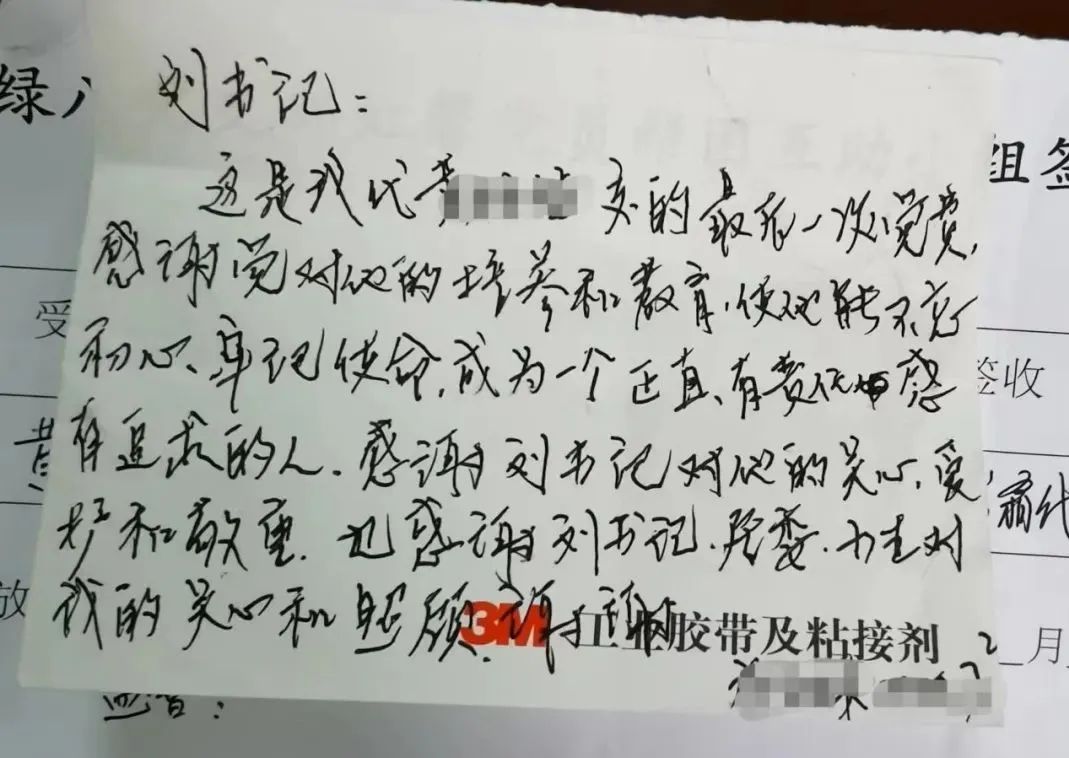 刘书记：
这是我代黄 交的最后一次党费，
感谢党对他的培养和教育，使他能不忘
初心、牢记使命，成为一个正直、有责任感
有追求的人。感谢刘书记对他的关心、爱
护和敬重。也感谢刘书记、居委、小李对
我的关心和照顾，谢谢
3M 工业胶带及粘接剂
绿
组签
受
签收
黄
代
放
月